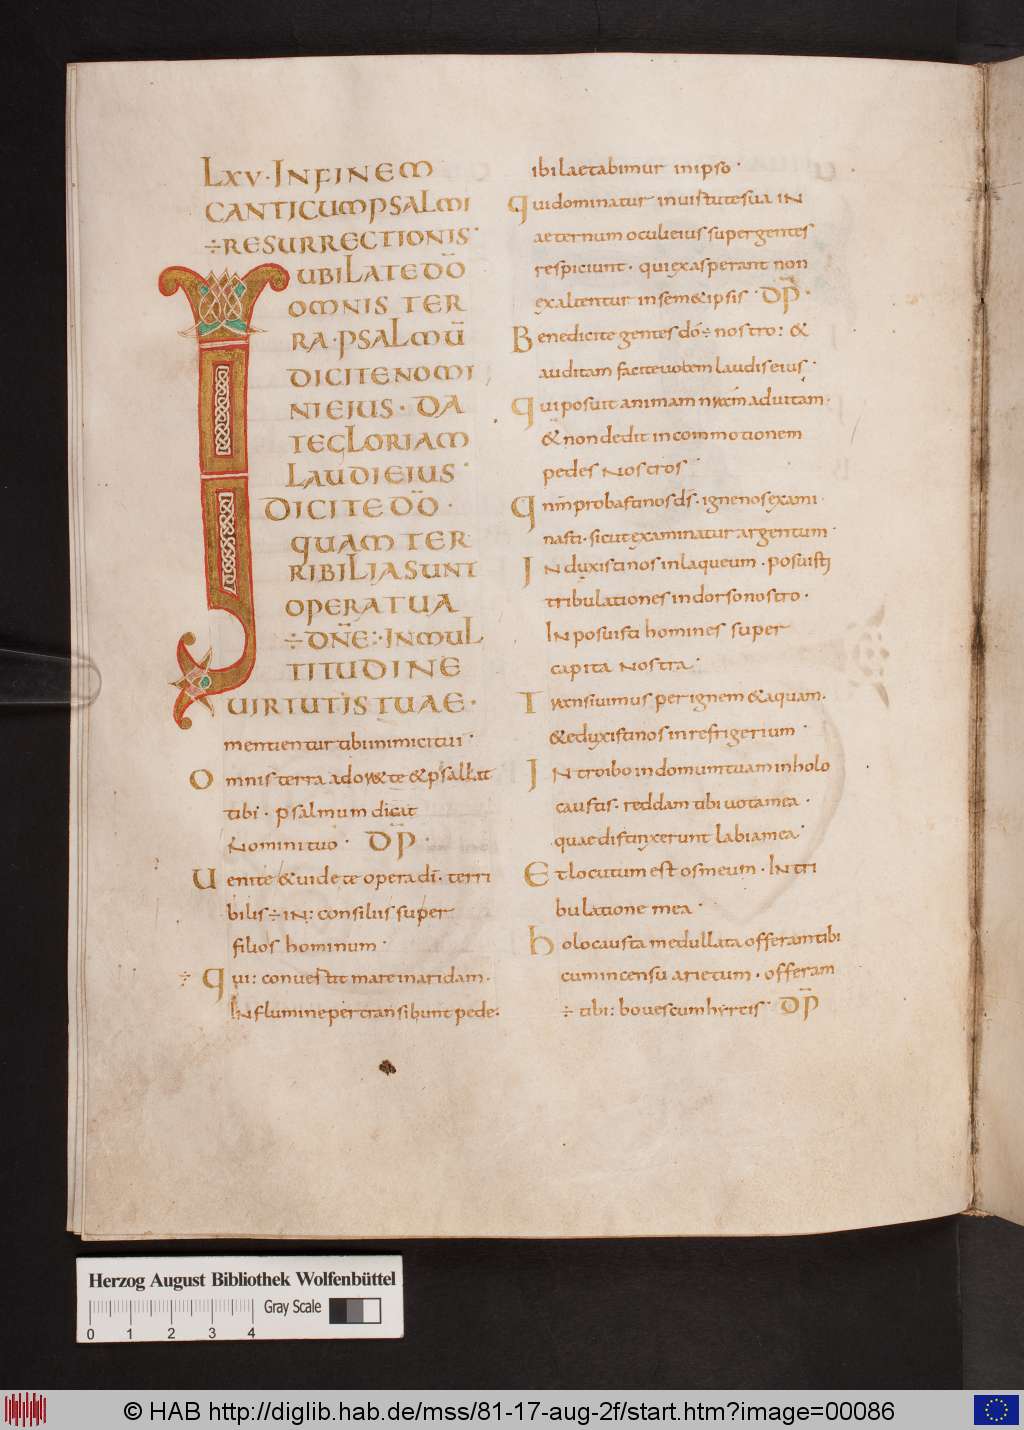 LXV · IN FINEM
CANTICUM PSALMI
÷ RESURRECTIONIS ·
IUBILATE DŌ
OMNIS TER
RA · PSALMŪ
DICITE NOMI
NI EIUS · DA
TE GLORIAM
LAUDI EIUS ·
DICITE DŌ ·
QUAM TER
RIBILIA SUNT
OPERA TUA
÷ DN̄E : · IN MUL
TITUDINE
VIRTUTIS TUAE ·
mentientur tibi inimici tui ·
Omnis terra adoret te & psallat
tibi · psalmum dicat
Nomini tuo · DP̄ ·
Uenite & uidete opera dī · terri
bilis ÷ IN : consiliis super
filios hominum ·
÷ Qui : conuertit mare in aridam ·
In flumine pertransibunt pede ·
ibi laetabimur in ipso ·
Qui dominatur in uirtute sua IN
aeternum oculi eius super gentes
respiciunt · qui exasperant non
exaltentur in sem& ipsis · DP̄ ·
Benedicite gentes dō ÷ nostro : &
auditam facite uocem laudis eius ·
Qui posuit animam meam ad uitam ·
& non dedit in commotionem
pedes Nostros ·
Qnm̄ probasti nos dS̄ · igne nos exami
nasti · sicut examinatur argentum ·
INduxisti nos in laqueum · posuisti
tribulationes in dorso nostro ·
INposuisti homines super
capita Nostra ·
Transiuimus per ignem & aquam ·
& eduxisti nos in refrigerium ·
INtroibo in domum tuam in holo
caustis · reddam tibi uota mea ·
quae distinxerunt labia mea ·
Et locutum est os meum · IN tri
bulatione mea ·
holocausta medullata offeram tibi
cum incensu arietum · offeram
÷ tibi : boues cum hyrcis · DP̄
Herzog August Bibliothek Wolfenbüttel
Gray Scale
0 1 2 3 4
© HAB http://diglib.hab.de/mss/81-17-aug-2f/start.htm?image=00086